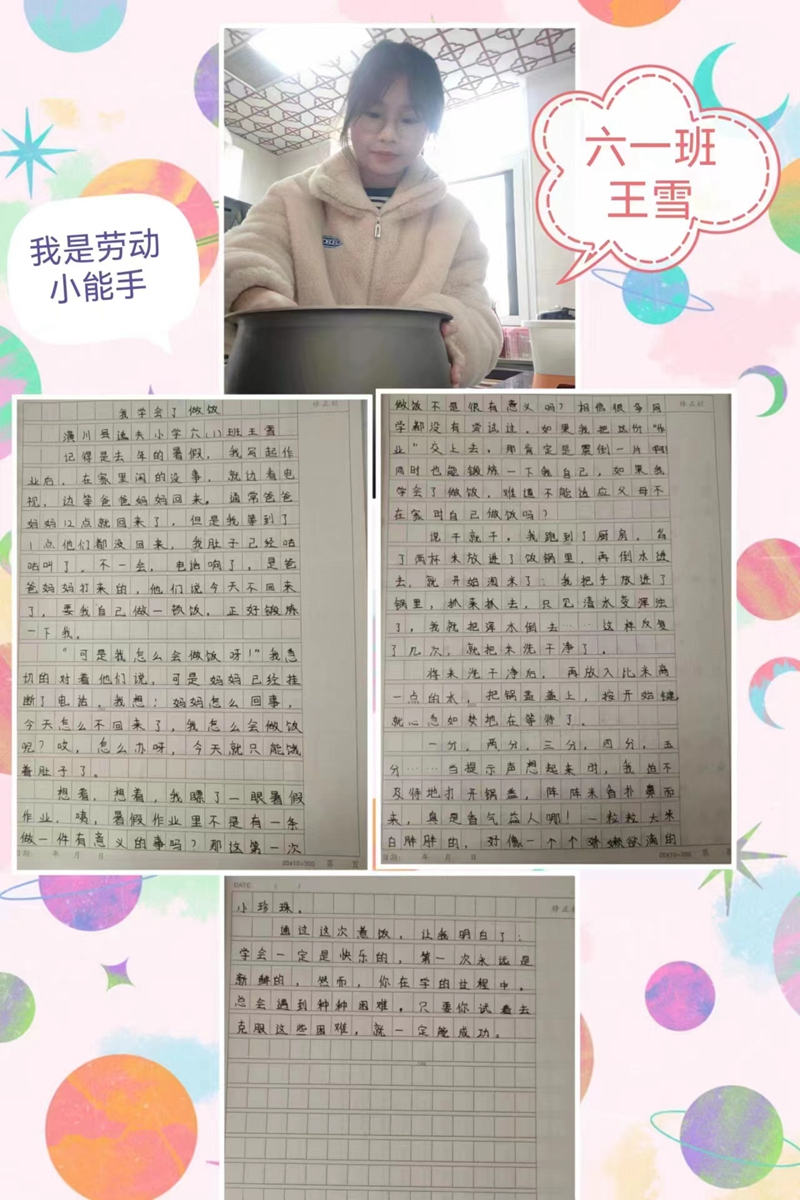 六一班
王雪
我是劳动
小能手
我学会了做饭
潢川县逸夫小学六(1)班王雪
记得是去年的暑假,我写起作
业后,在家里闲的没事,就边看电
视,边等爸爸妈妈回来。通常爸爸
妈妈12点就回来了,但是我等到了
1点他们都没回来,我肚子已经咕
咕叫了。不一会,电话响了,是爸
爸妈妈打来的,他们说今天不回来
了,要我自己做一顿饭,正好锻炼
一下我。
“可是我怎么会做饭呀!”我急
切的对着他们说,可是妈妈已经挂
断了电话。我想:妈妈怎么回事,
今天怎么不回来了,我怎么会做饭
呢?哎,怎么办呀,今天就只能饿
着肚子了。
想着,想着,我瞟了一眼暑假
作业,咦,暑假作业里不是有一条
做一件有意义的事吗?那这第一次
年 月 日
20×15=300 第 页
做饭不是很有意义吗?相信很多同
学都没有尝试过。如果我把这份“作
业”交上去,那肯定是震倒一片啊!
同时也能锻炼一下我自己,如果我
学会了做饭,难道不能适应父母不
在家时自己做饭吗?
说干就干,我跑到了厨房,舀
了两杯米放进了饭锅里,再倒水进
去,就开始淘米了:我把手放进了
锅里,抓来抓去,只见清水变浑浊
了,我就把浑水倒去……这样反复
了几次,就把米洗干净了。
将米洗干净后,再放入比米高
一点的水,把锅盖盖上,按开始键,
就心急如焚地在等待了。
一分,两分,三分,四分,五
分……当提示声想起来时,我迫不
及待地打开锅盖,阵阵米香扑鼻而
来,真是香气益人哪!一粒粒大米
白胖胖的,好像一个个娇嫩欲滴的
年 月 日
20×15=300 第 页
DATE
小珍珠。
通过这次煮饭,让我明白了:
学会一定是快乐的,第一次永远是
新鲜的,然而,你在学的过程中,
总会遇到种种困难,只要你试着去
克服这些困难,就一定能成功。